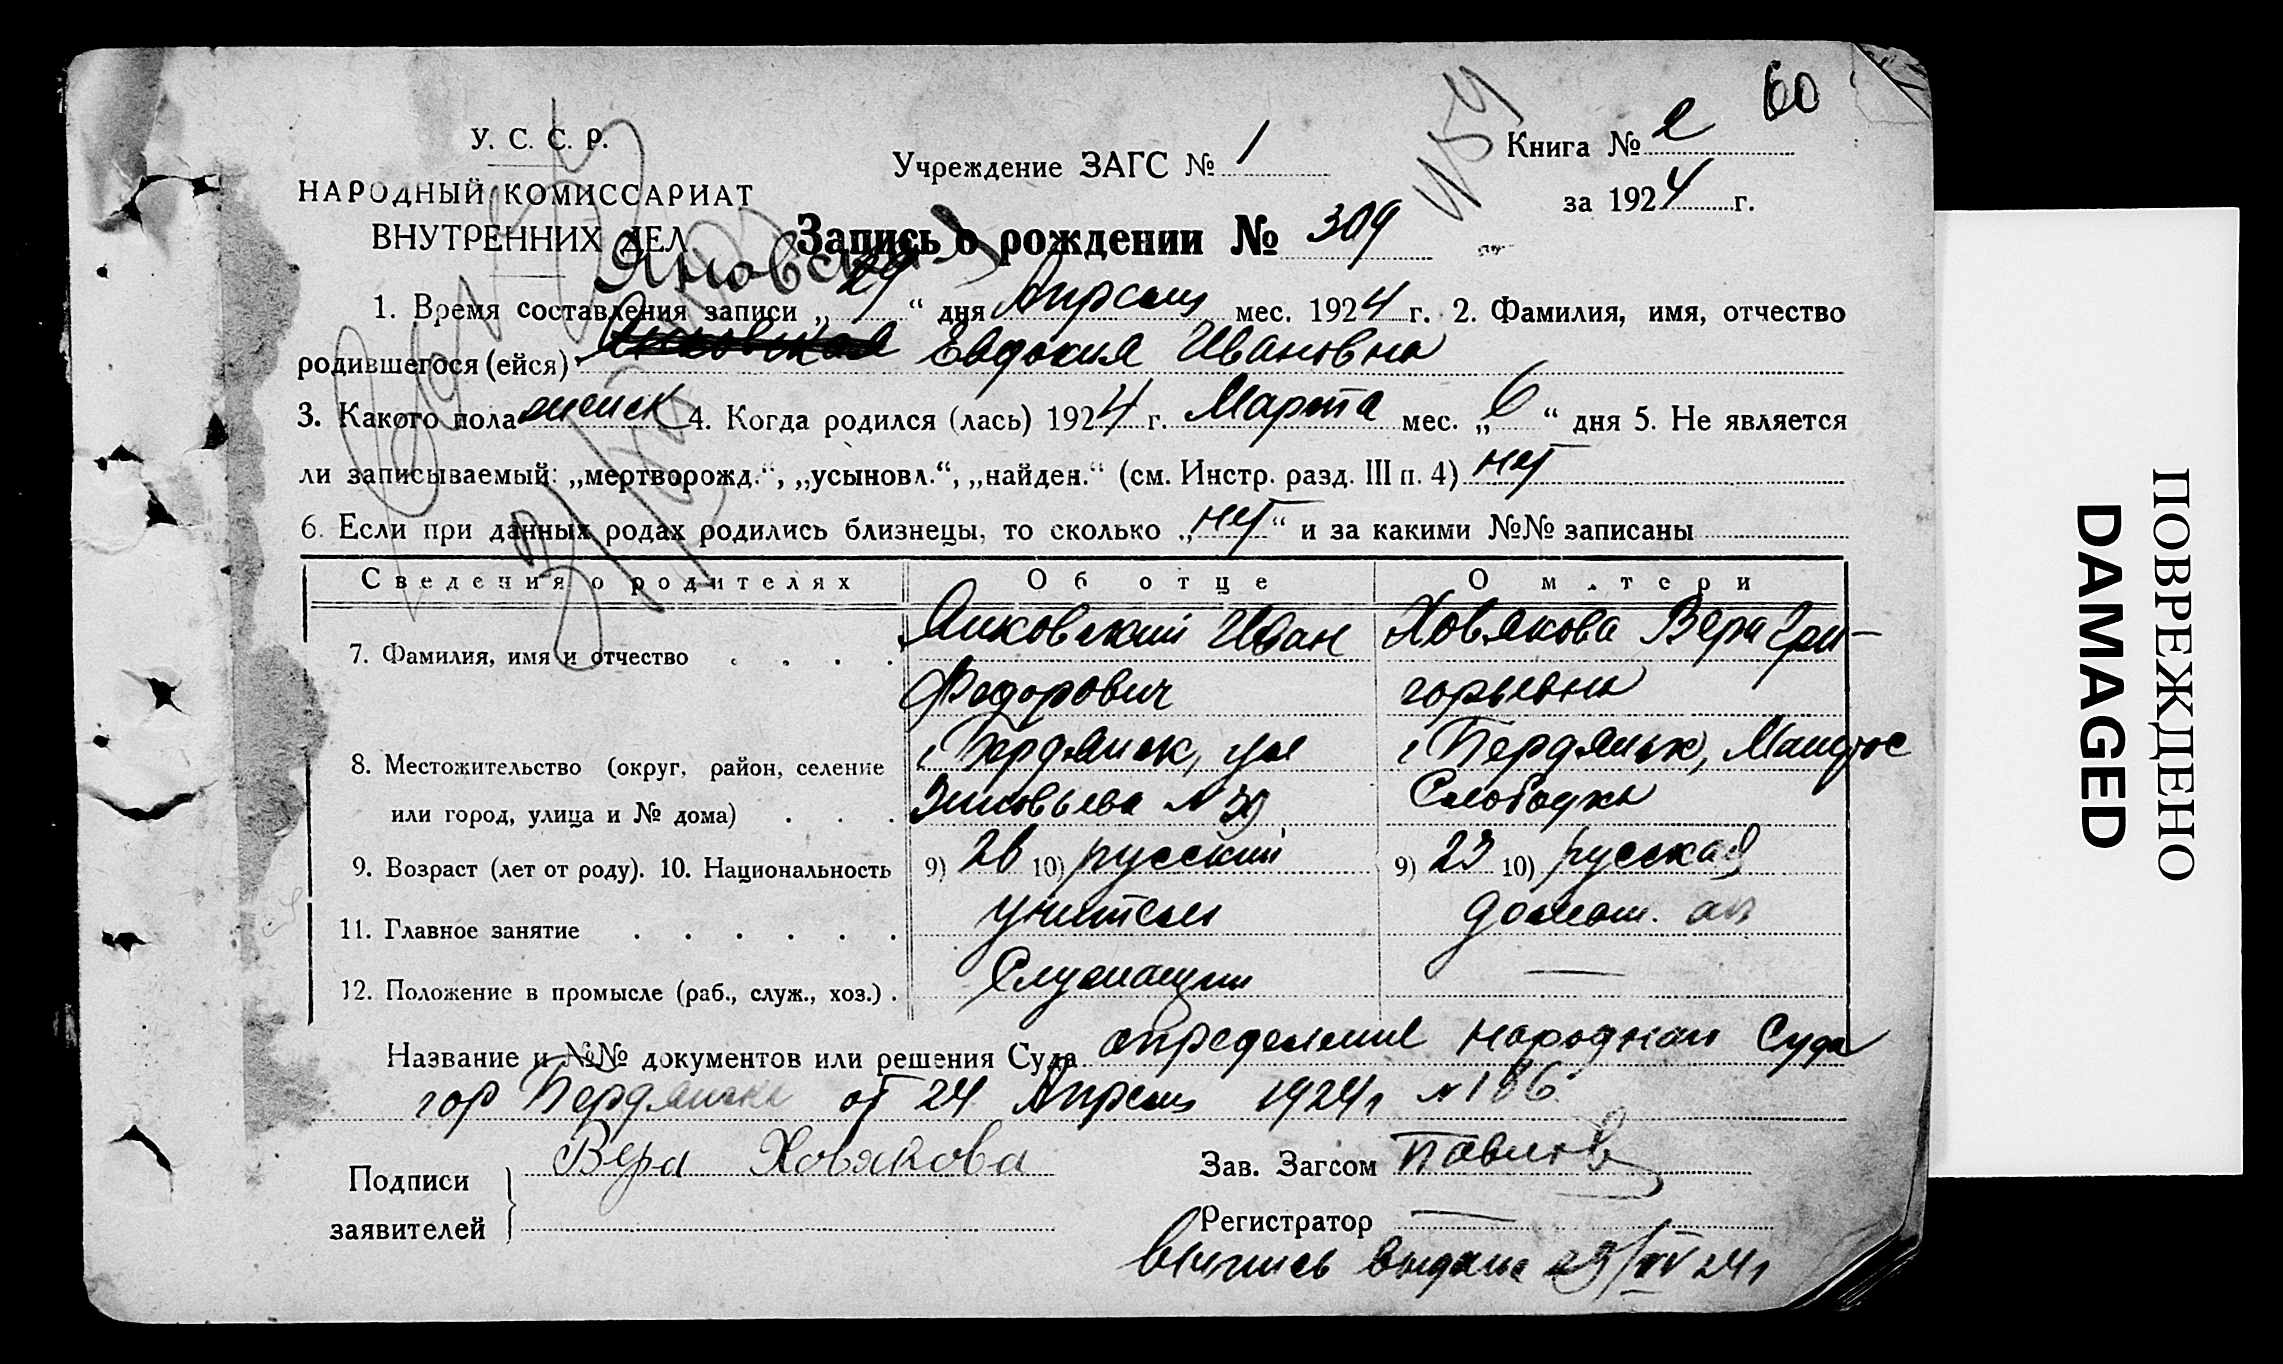 60
У. С. С. Р.
НАРОДНЫЙ КОМИССАРИАТ
ВНУТРЕННИХ ДЕЛ
Учреждение ЗАГС № 1
Книга № 2
за 1924 г.
Запись о рождении № 309
1. Время составления записи „29“ дня Апреля мес. 1924 г. 2. Фамилия, имя, отчество
родившегося (ейся) Евдокия Ивановна
3. Какого пола женск 4. Когда родился (лась) 1924 г. Марта мес. „6“ дня 5. Не является
ли записываемый: „мертворожд.“, „усыновл.“, „найден.“ (см. Инстр. разд. III п. 4) нет
6. Если при данных родах родились близнецы, то сколько „нет“ и за какими №№ записаны
Сведения о родителях Об отце О м.тери
7. Фамилия, имя и отчество Янковский Иван Ховякова Вера Гри-
Федорович горьевна
8. Местожительство (округ, район, селение г Бердянск, ул г Бердянск,
или город, улица и № дома) Зиновьева № Слободка
9. Возраст (лет от роду). 10. Национальность 9) 26 10) русский 9) 23 10) русская
11. Главное занятие учитель домаш.
12. Положение в промысле (раб., служ., хоз.) Служащий —
Название и №№ документов или решения Суда определение народнаго Суда
гор Бердянска от 24 Апреля 1924 г № 186
Подписи заявителей Вера Ховякова
Зав. Загсом Павлов
Регистратор —
выпись выдана 29/IV 24 г
ПОВРЕЖДЕНО
DAMAGED